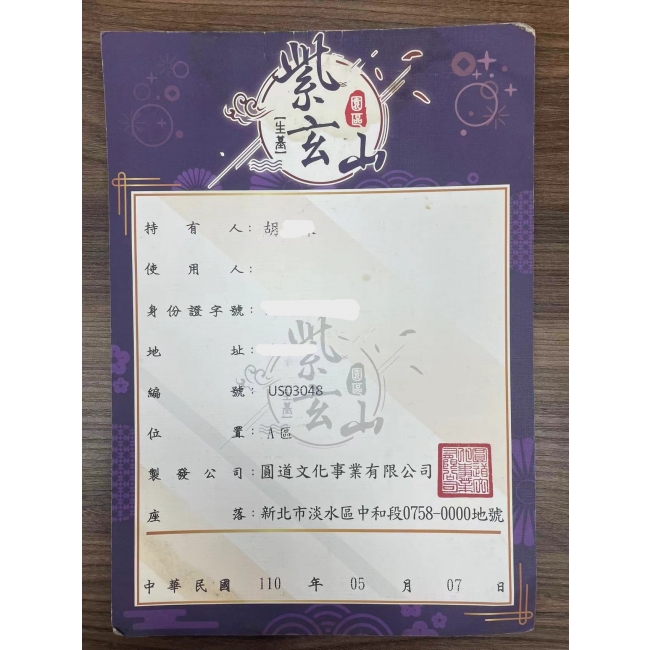 紫玄山
園區
【生基】
持有人：胡
使用人：
身份證字號：
地址：
編號：US03048
位置：A區
製發公司：圓道文化事業有限公司
座落：新北市淡水區中和段0758-0000地號
中華民國 110 年 05 月 07 日